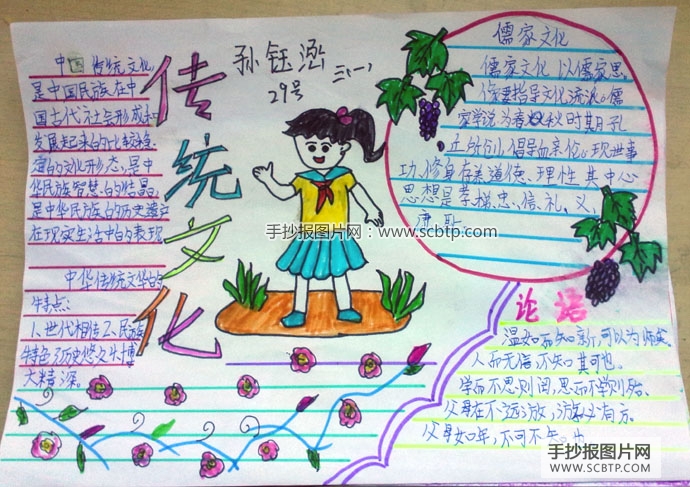 传统文化
孙钰泓
三(一)
29号
中国传统文化
是中国民族在中
国古代社会形成和
发展起来的比较稳
定的文化形态,是中
华民族智慧的结晶,
是中华民族的历史遗产
在现实生活中的表现
中华传统文华的
特点:
1、世代相传2、民族
特色3历史悠久4、博
大精深。
儒家文化
儒家文化以儒家思
像要指导文化流派。儒
家学说为春秋时其月孔
丘所创,倡导血亲伦。现世事
功、修身存养道德、理性其中心
思想是孝、悌、忠、信、礼、义、
廉、耻
论语
温如而知新,可以为师矣
人而无信,不知其可也。
学而不思则罔,思而不学则殆。
父母在不远游,游必有方。
父母如年,不可不知。也
手抄报图片网:www.scbtp.com
手抄报图片网
WWW.SCBTP.COM